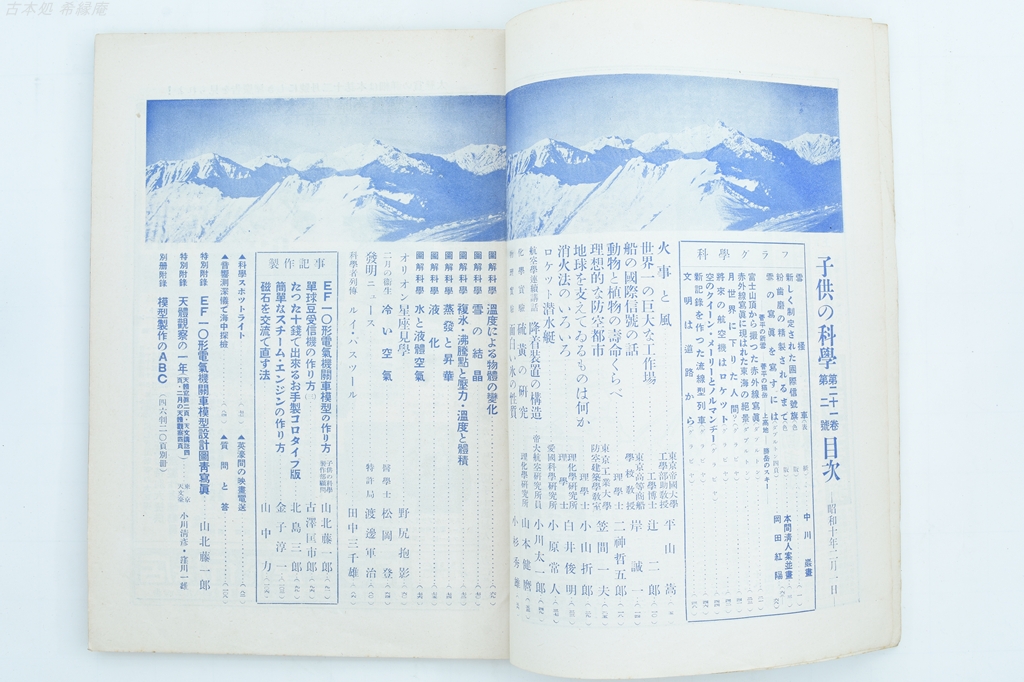 古本処 希縁庵
子供の科學
第二十一卷
第二號
目次
—昭和十年二月一日—
科學グラフ
雲
新しく制定された國際信號旗
粉齒磨の精製されるまで
雲の寫眞を寫すには
富士山頂から撮つた赤外線寫眞
赤外線寫眞に現はれた東海の絕景
月世界に下りた人間
將來の航空機はロケット
空のクイーン・メーリーとノルマンデー
新記錄を作つた流線型列車
文明は道路から
中川
本間清人案並畫
岡田紅陽
火事と風
東京帝國大學
工學部助敎授
平山嵩
世界一の巨大な工作場
工學博士
辻二郎
船の國際信號の話
東京高等商船
學校敎授
岸誠一
動物と植物の壽命くらべ
理學士
二神哲五郎
理想的な防空都市
東京工業大學
防空建築學敎室
笠間一夫
地球を支えてゐるものは何か
理學士
小山折郎
消火法のいろいろ
理化學研究所
理學士
白井俊明
ロケット潜水艇
愛國科學硏究所
小原常人
航空學連續講話
降着裝置の構造
帝大航空硏究所員
小川太一郎
化學實驗
硫黄の硏究
理化學硏究所
山本健麿
面白い氷の性質
小杉秀雄
圖解科學 溫度による物體の變化
圖解科學 雪の結晶
圖解科學 復氷・沸騰點と壓力・溫度と體積
圖解科學 蒸發と昇華
圖解科學 液化
圖解科學 水と液體空氣
オリオン星座見學
野尻抱影
二月の衞生
冷い空氣
醫學士
松岡登
發明ニュース
特許局
渡邊軍治
科學者列傳
ルイ・パスツール
田中三千雄
製作記事
EF一〇形電氣機關車模型の作り方
子供の科學
製作部顧問
山北藤一郎
單球豆受信機の作り方
古澤匡市郎
たつた十錢で出來るお手製コロタイプ版
北島三郎
簡單なスチーム・エンジンの作り方
金子淳一
磁石を交流で直す法
山中力
▲科學スポツトライト
▲英濠間の映畫電送
▲音響測深儀で海中探檢
▲質問と答
特別附錄 EF一〇形電氣機關車模型設計圖靑寫眞
山北藤一郎
特別附錄 天體觀察の一年
東京
天文臺
小川淸彥・窪川一雄
別册附錄 模型製作のABC
(四六判二一〇頁別册)